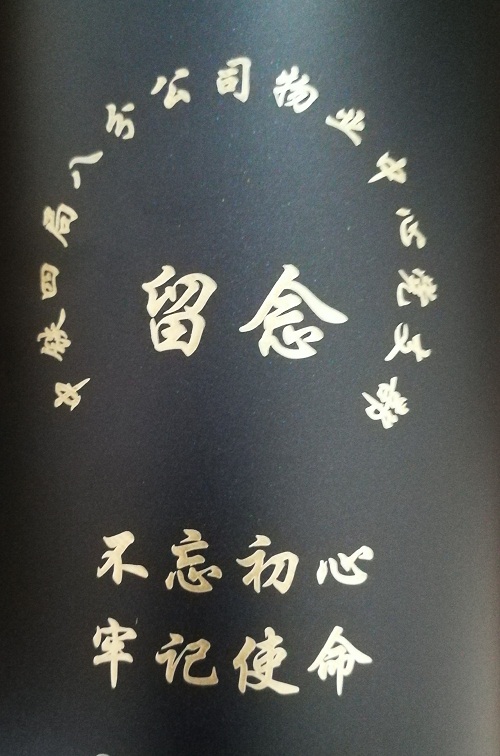 中铁四局八分公司物资中心党支部
留念
不忘初心
牢记使命